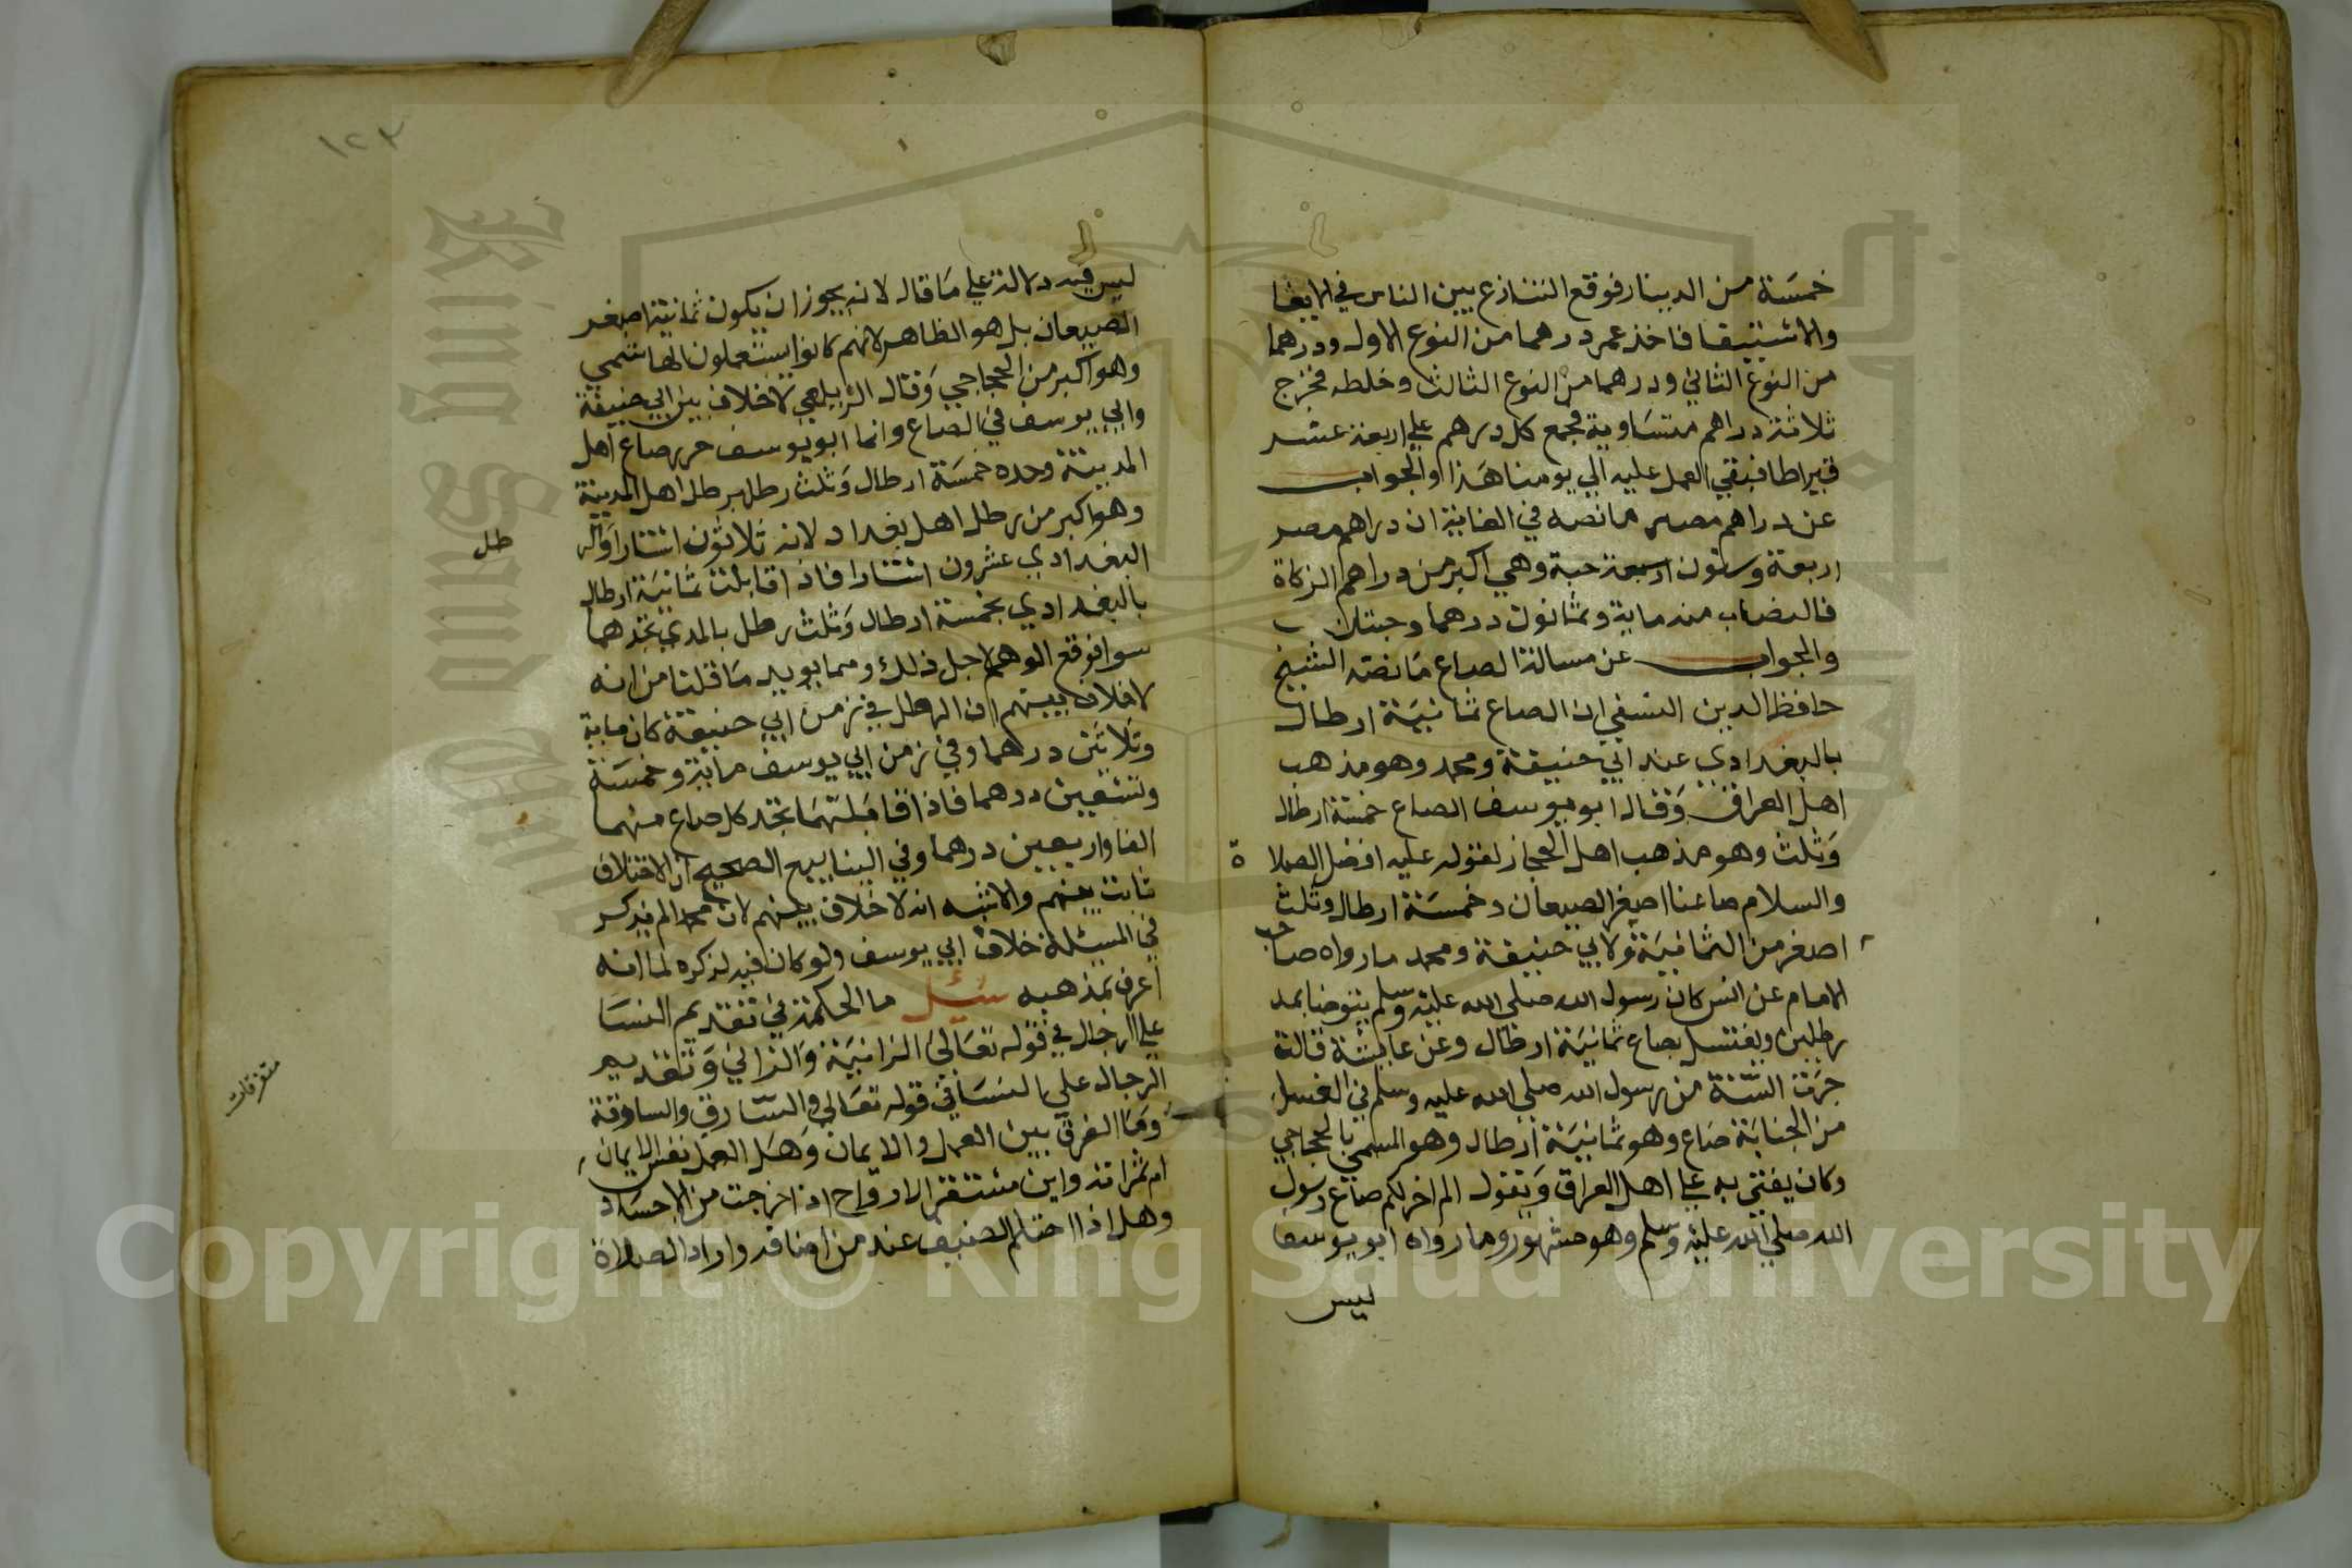 خمسة من الدينار فوقع التنازع بين الناس في الايفا
والاستيفا فاخذ عمر درهما من النوع الاول ودرهما
من النوع الثاني ودرهما من النوع الثالث وخلطه فخرج
ثلاثة دراهم متساوية فجمع كل درهم علي اربعة عشر
قيراطا فبقي العمل عليه الي يومنا هذا والجواب
عن دراهم مصر ما نصه في الغاية ان دراهم مصر
اربعة وستون حبة وهي اكبر من دراهم الزكاة
فالنصاب منه ماية وثمانون درهما وحبتان
والجواب عن مسالة الصاع ما نصه الشيخ
حافظ الدين النسفي ان الصاع ثمانية ارطال
بالبغدادي عند ابي حنيفة ومحمد وهو مذهب
اهل العراق وقال ابو يوسف الصاع خمسة ارطال
وثلث وهو مذهب اهل الحجاز لقوله عليه افضل الصلاة
والسلام صاعنا اصغر الصيعان وخمسة ارطال وثلث
اصغر من الثمانية ولابي حنيفة ومحمد ما رواه صاحب
الامام عن انس كان رسول الله صلي الله عليه وسلم يتوضا بمد
رطلين ويغتسل بصاع ثمانية ارطال وعن عايشة قالت
جرت السنة من رسول الله صلي الله عليه وسلم في الغسل
من الجنابة صاع وهو ثمانية ارطال وهو المسمي بالحجاجي
وكان يفتي به علي اهل العراق ويقول الم اخرج لكم صاع رسول
الله صلي الله عليه وسلم وهو مشهور وما رواه ابو يوسف
ليس
١٢٣
ليس فيه دلالة علي ما قاله لانه يجوز ان يكون ثمانية اصغر
الصيعان بل هو الظاهر لانهم كانوا يستعملون الهاشمي
وهو اكبر من الحجاجي وقال الزيلعي لا خلاف بين ابي حنيفة
وابي يوسف في الصاع وانما ابو يوسف حرر صاع اهل
المدينة وحده خمسة ارطال وثلث رطل برطل اهل المدينة
وهو اكبر من رطل اهل بغداد لانه ثلاثون استارا والر
طل
البغدادي عشرون استارا فاذا قابلت ثمانية ارطال
بالبغدادي بخمسة ارطال وثلث رطل بالمدني تجدهما
سوا فوقع الوهم لاجل ذلك ومما يويد ما قلنا من انه
لا خلاف بينهم ان الرطل في زمن ابي حنيفة كان ماية
وثلاثين درهما وفي زمن ابي يوسف ماية وخمسة
وتسعين درهما فاذا قابلتهما تجد كل صاع منهما
الفا واربعين درهما وفي الينابيع الصحيح ان الاختلاف
ثابت بينهم والاشبه انه لا خلاف بينهم لان محمدا لم يذكر
في المسئلة خلاف ابي يوسف ولو كان فيه لذكره لما انه
اعرف بمذهبه سئل ما الحكمة في تقديم النسا
علي الرجال في قوله تعالي الزانية والزاني وتقديم
الرجال علي النسا في قوله تعالي والسارق والسارقة
وما الفرق بين العمل والايمان وهل العمل نفس الايمان
متفرقات
ام ثمراته واين مستقر الارواح اذا خرجت من الاجساد
وهل اذا احتلم الضيف عند من اضافه واراد الصلاة
Copyright © King Saud University
King Saud University